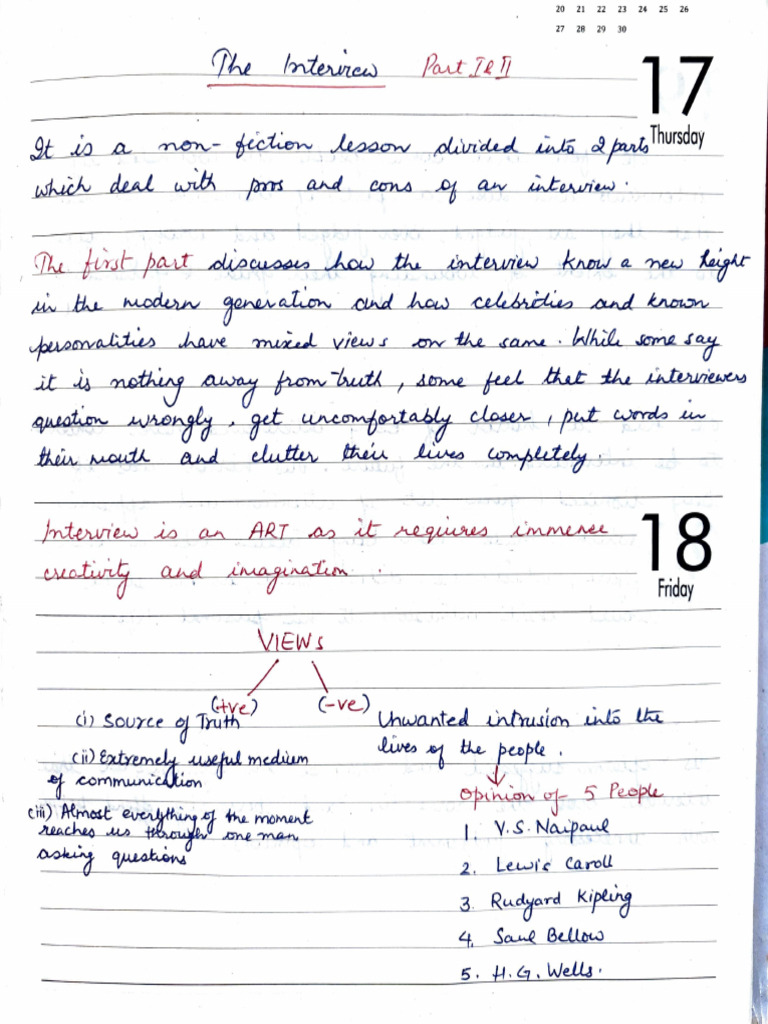 20 21 22 23 24 25 26
27 28 29 30
The Interview Part I & II
17
Thursday
It is a non-fiction lesson divided into 2 parts
which deal with pros and cons of an interview.
The first part discusses how the interview know a new height
in the modern generation and how celebrities and known
personalities have mixed views on the same. While some say
it is nothing away from truth, some feel that the interviewers
question wrongly, get uncomfortably closer, put words in
their mouth and clutter their lives completely.
18
Friday
Interview is an ART as it requires immense
creativity and imagination.
VIEWS
(+ve) (-ve)
(i) Source of Truth
(ii) Extremely useful medium
of communication
(iii) Almost everything of the moment
reaches us through one man
asking questions
Unwanted intrusion into the
lives of the people.
Opinion of 5 People
1. V.S. Naipaul
2. Lewis Caroll
3. Rudyard Kipling
4. Saul Bellow
5. H.G. Wells.